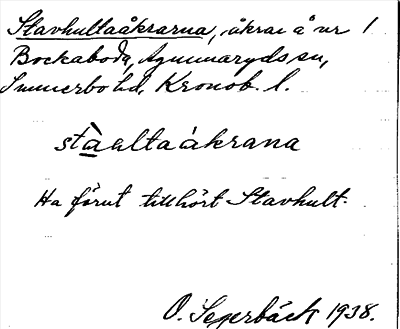 Stavhultaåkrarna, åkrar å nr 1
Bockaboda, Agunnaryds sn,
Sunnerbo hd, Kronob. l.
stàaltaåkrana
Ha förut tillhört Stavhult.
O. Segerbäck 1938.